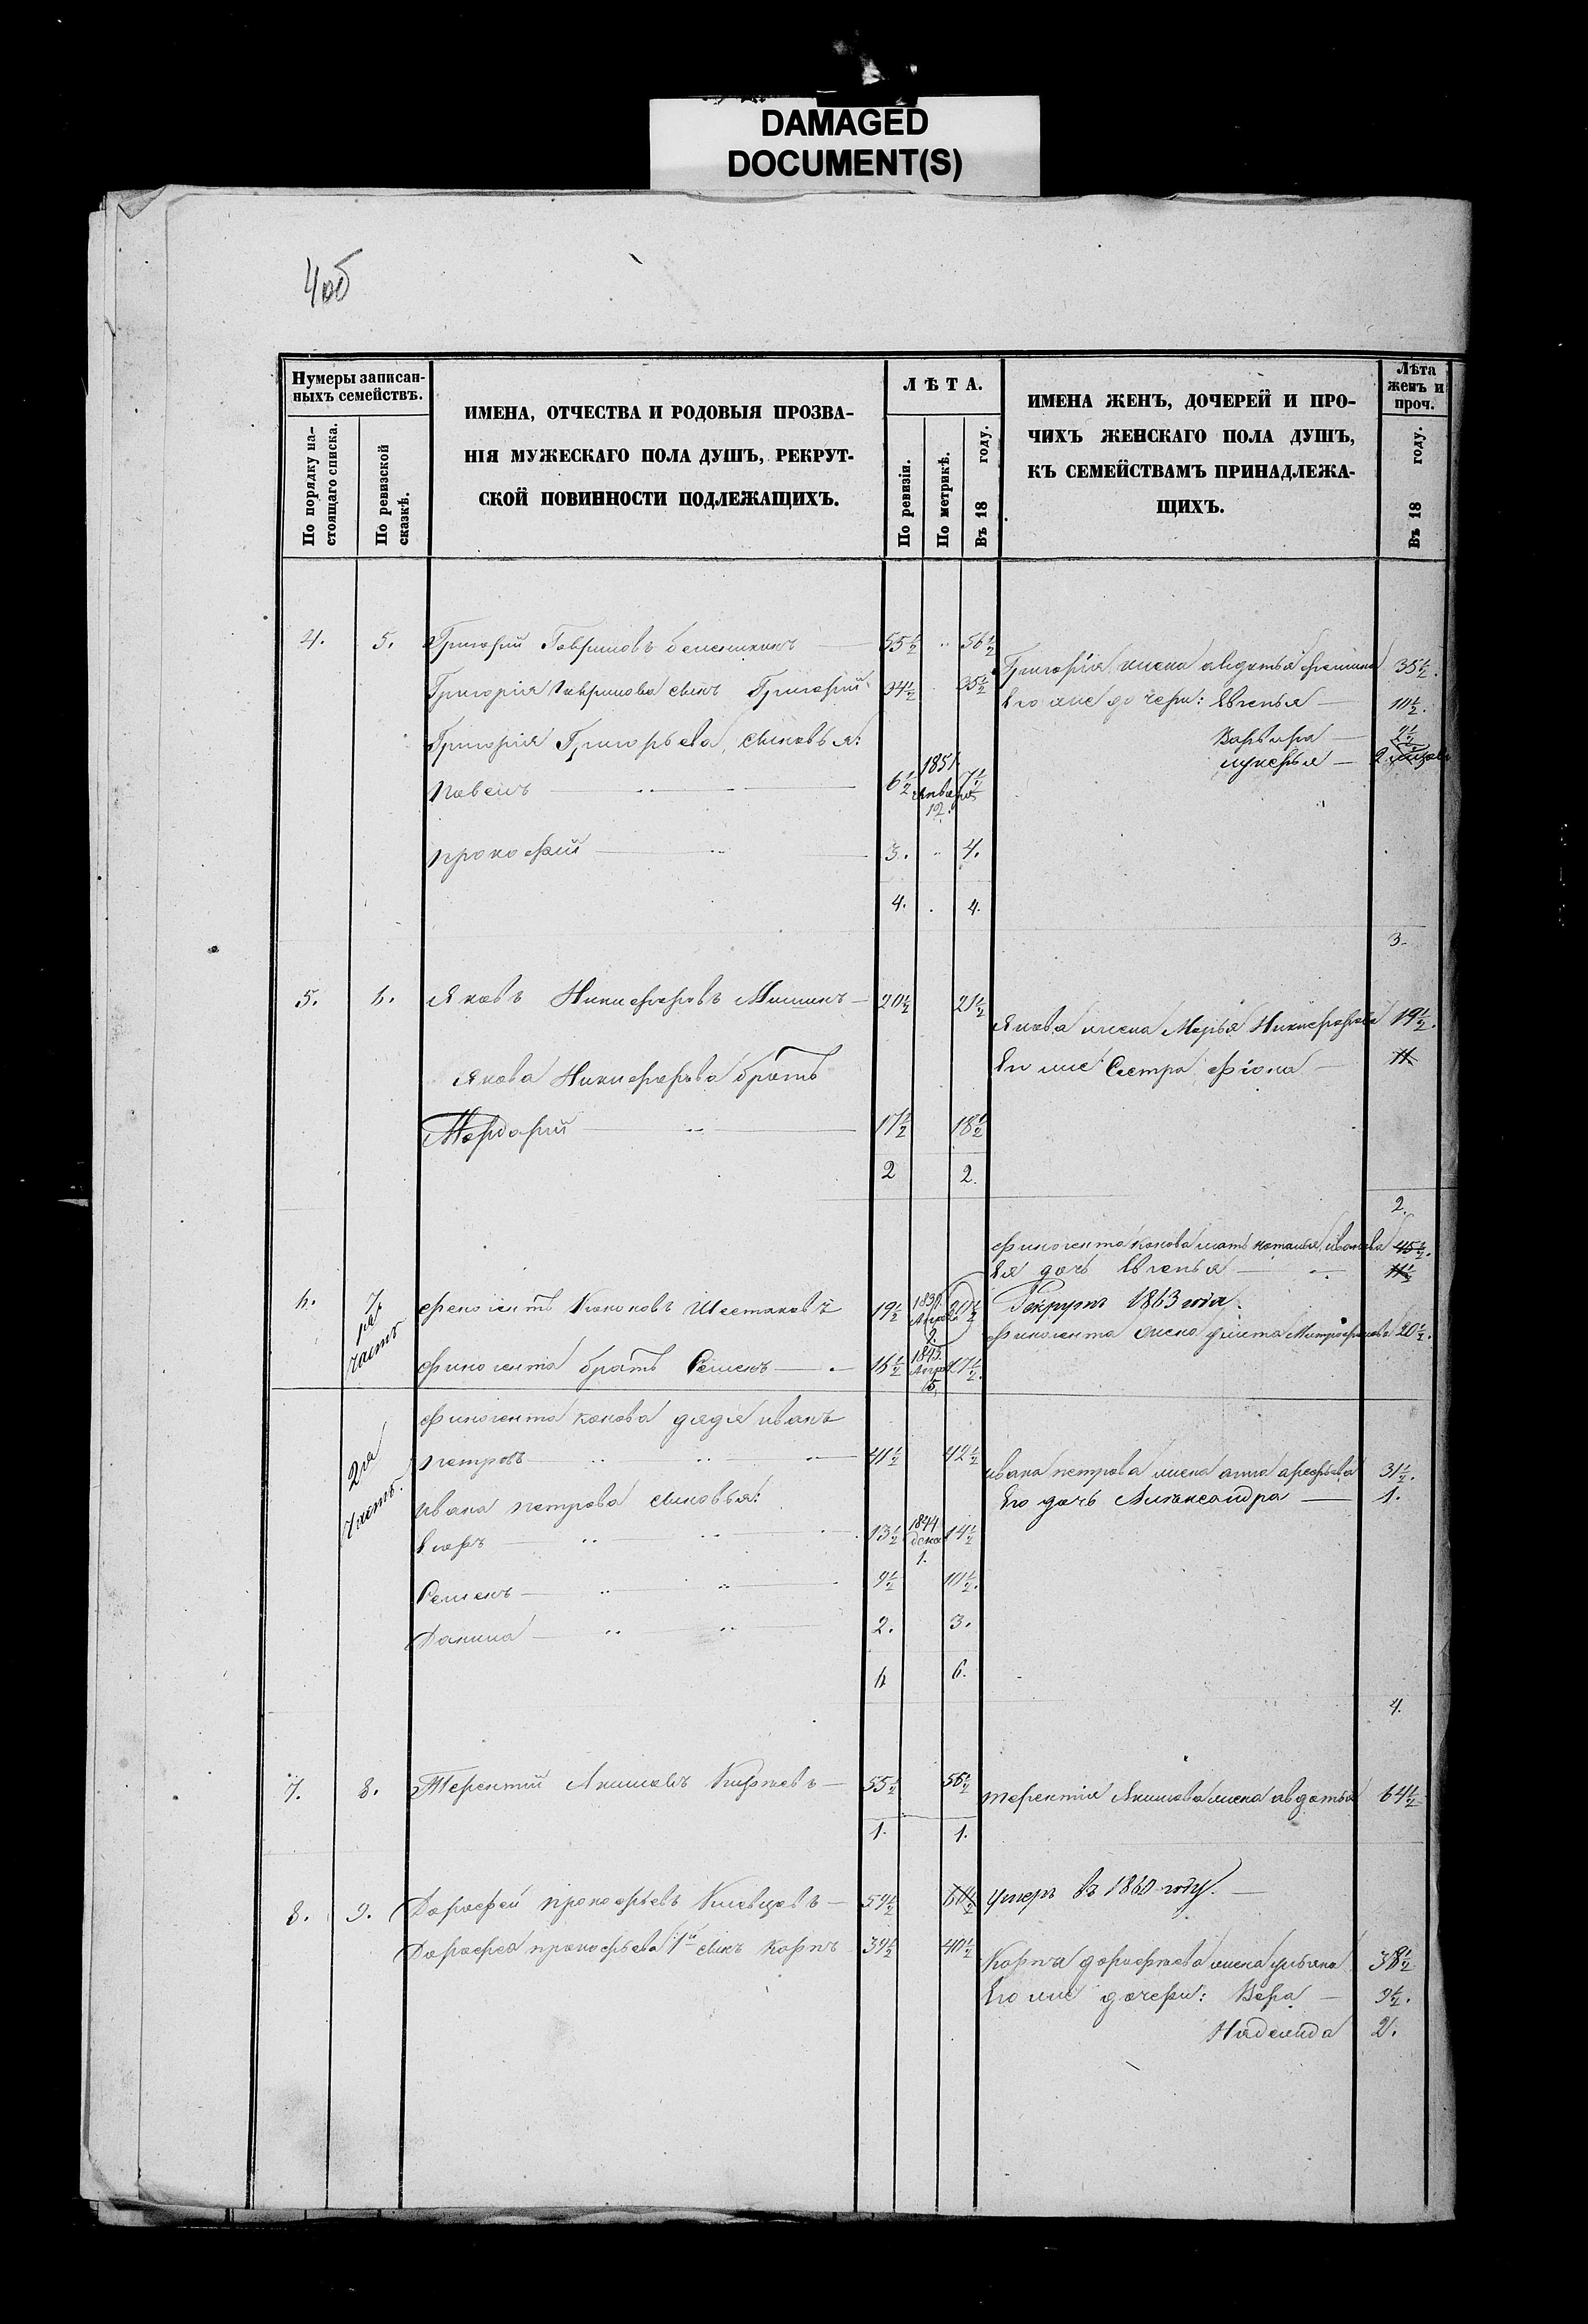 DAMAGED
DOCUMENT(S)
4об
Нумеры записан-
ныхъ семействъ.
По порядку на-
стоящаго списка.
По ревизской
сказкѣ.
ИМЕНА, ОТЧЕСТВА И РОДОВЫЯ ПРОЗВА-
НІЯ МУЖЕСКАГО ПОЛА ДУШЪ, РЕКРУТ-
СКОЙ ПОВИННОСТИ ПОДЛЕЖАЩИХЪ.
ЛѢТА.
По ревизіи.
По метрикѣ.
Въ 18 году.
ИМЕНА ЖЕНЪ, ДОЧЕРЕЙ И ПРО-
ЧИХЪ ЖЕНСКАГО ПОЛА ДУШЪ,
КЪ СЕМЕЙСТВАМЪ ПРИНАДЛЕЖА-
ЩИХЪ.
Лѣта
женъ и
проч.
Въ 18 году.
4. 5. Григорий Гавриловъ 55½ 56½
Григория жена авдотья 35½.
Григория Гаврилова сынъ Григорий 34½ 35½
Его же дочери: Евгенья 10½.
Григория Григорьева сыновья:
Варвара 4½
лукерья
павелъ 6½ 1851 Января 12. 7½
прокофий 3. 4.
4. 4.
3.
5. 6. Яковъ Никифоровъ Мишинъ 20½ 21½
Якова жена Марья Никифорова 19½.
Якова Никифорова братъ
Его же Сестра фiона 11
Мардарий 17½ 18½
2 2.
2.
финогента конова мать наталья иванова 45½.
Ея дочь Евгенья 11½
6. 7. 1я часть финогентъ Кононовъ Шестаковъ 19½ 1839. 2. 20½
Рекрутъ 1863 года.
финогента жена улита Митрофанова 20½.
финогента братъ Семенъ 16½ 1843. 15. 17½.
2я часть. финогента конова дядя иванъ
петровъ 41½ 42½
ивана петрова жена анна арефьева 31½.
ивана петрова сыновья:
Его дочь Александра 1.
Егоръ 13½ 1844 дека 1. 14½
Семенъ 9½ 10½.
Данила 2. 3.
6 6.
4.
7. 8. Терентий Якимовъ 55½ 56½
терентия Якимова жена авдотья 64½
1. 1.
8. 9. Дорофей прокофьевъ Киевцовъ 59½ 60½
умеръ въ 1860 году.
Дорофея прокофьева 1й сынъ карпъ 39½ 40½
Карпа дорофеева жена ульяна 38½
Его же дочери: Вера 9½.
Надежда 2.